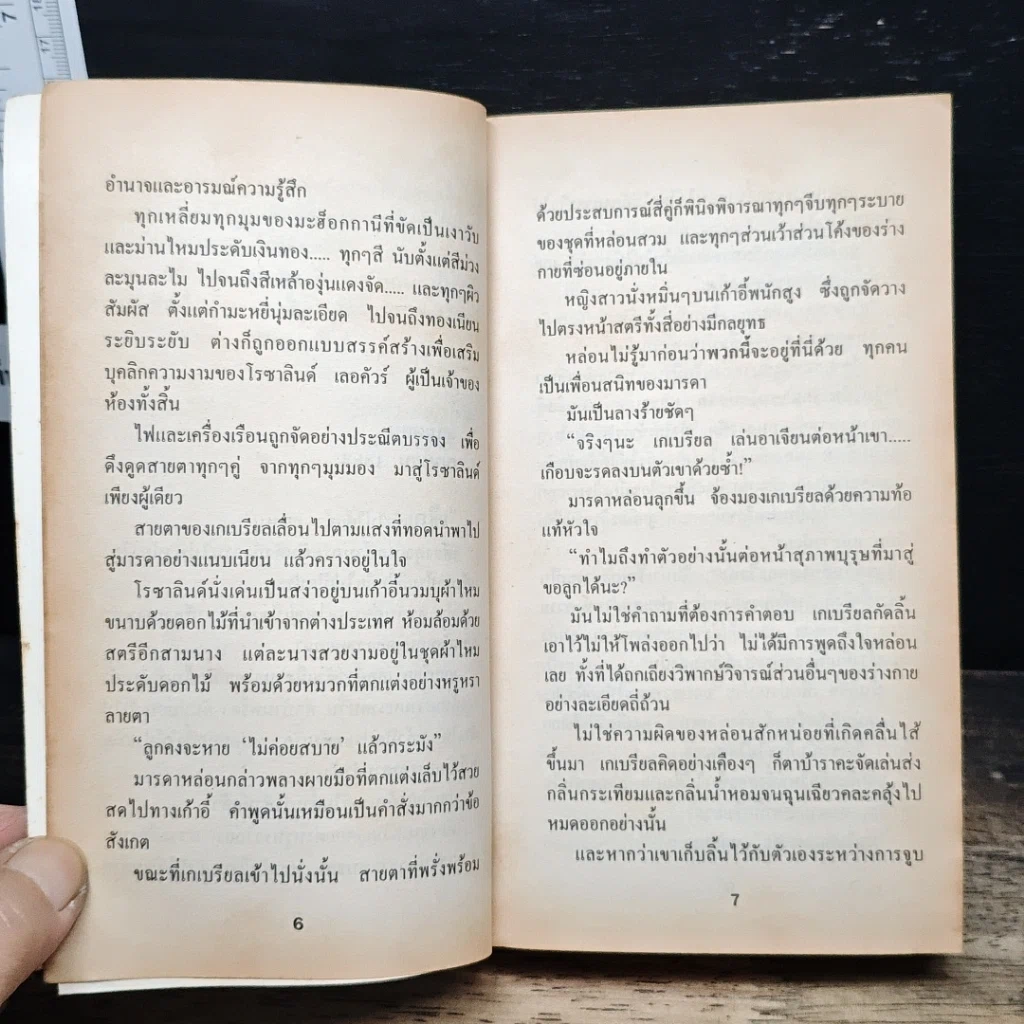 อำนาจและอารมณ์ความรู้สึก
ทุกเหลี่ยมทุกมุมของมะฮ็อกกานีที่ขัดเป็นเงาวับ
และม่านไหมประดับเงินทอง..... ทุกๆสี นับตั้งแต่สีม่วง
ละมุนละไม ไปจนถึงสีเหล้าองุ่นแดงจัด..... และทุกๆผิว
สัมผัส ตั้งแต่กำมะหยี่นุ่มละเอียด ไปจนถึงทองเนียน
ระยิบระยับ ต่างก็ถูกออกแบบสรรค์สร้างเพื่อเสริม
บุคลิกความงามของโรซาลินด์ เลอคัวร์ ผู้เป็นเจ้าของ
ห้องทั้งสิ้น
ไฟและเครื่องเรือนถูกจัดอย่างประณีตบรรจง เพื่อ
ดึงดูดสายตาทุกๆคู่ จากทุกๆมุมมอง มาสู่โรซาลินด์
เพียงผู้เดียว
สายตาของเกเบรียลเลื่อนไปตามแสงที่ทอดนำพาไป
สู่มารดาอย่างแนบเนียน แล้วครางอยู่ในใจ
โรซาลินด์นั่งเด่นเป็นสง่าอยู่บนเก้าอี้นวมบุผ้าไหม
ขนาบด้วยดอกไม้ที่นำเข้าจากต่างประเทศ ห้อมล้อมด้วย
สตรีอีกสามนาง แต่ละนางสวยงามอยู่ในชุดผ้าไหม
ประดับดอกไม้ พร้อมด้วยหมวกที่ตกแต่งอย่างหรูหรา
ลายตา
“ลูกคงจะหาย ‘ไม่ค่อยสบาย’ แล้วกระมัง”
มารดาหล่อนกล่าวพลางผายมือที่ตกแต่งเล็บไว้สวย
สดไปทางเก้าอี้ คำพูดนั้นเหมือนเป็นคำสั่งมากกว่าข้อ
สังเกต
ขณะที่เกเบรียลเข้าไปนั่งนั้น สายตาที่พรั่งพร้อม
6
ด้วยประสบการณ์สี่คู่ก็พินิจพิจารณาทุกๆจีบทุกๆระบาย
ของชุดที่หล่อนสวม และทุกๆส่วนเว้าส่วนโค้งของร่าง
กายที่ซ่อนอยู่ภายใน
หญิงสาวนั่งหมิ่นๆบนเก้าอี้พนักสูง ซึ่งถูกจัดวาง
ไปตรงหน้าสตรีทั้งสี่อย่างมีกลยุทธ
หล่อนไม่รู้มาก่อนว่าพวกนี้จะอยู่ที่นี่ด้วย ทุกคน
เป็นเพื่อนสนิทของมารดา
มันเป็นลางร้ายชัดๆ
“จริงๆนะ เกเบรียล เล่นอาเจียนต่อหน้าเขา.....
เกือบจะรดลงบนตัวเขาด้วยซ้ำ!”
มารดาหล่อนลุกขึ้น จ้องมองเกเบรียลด้วยความท้อ
แท้หัวใจ
“ทำไมถึงทำตัวอย่างนั้นต่อหน้าสุภาพบุรุษที่มาสู่
ขอลูกได้นะ?”
มันไม่ใช่คำถามที่ต้องการคำตอบ เกเบรียลกัดลิ้น
เอาไว้ไม่ให้โพล่งออกไปว่า ไม่ได้มีการพูดถึงใจหล่อน
เลย ทั้งที่ได้ถกเถียงวิพากษ์วิจารณ์ส่วนอื่นๆของร่างกาย
อย่างละเอียดถี่ถ้วน
ไม่ใช่ความผิดของหล่อนสักหน่อยที่เกิดคลื่นไส้
ขึ้นมา เกเบรียลคิดอย่างเคืองๆ ก็ตาบ้าราคะจัดเล่นส่ง
กลิ่นกระเทียมและกลิ่นน้ำหอมจนฉุนเฉียวคละคลุ้งไป
หมดออกอย่างนั้น
และหากว่าเขาเก็บลิ้นไว้กับตัวเองระหว่างการจูบ
7